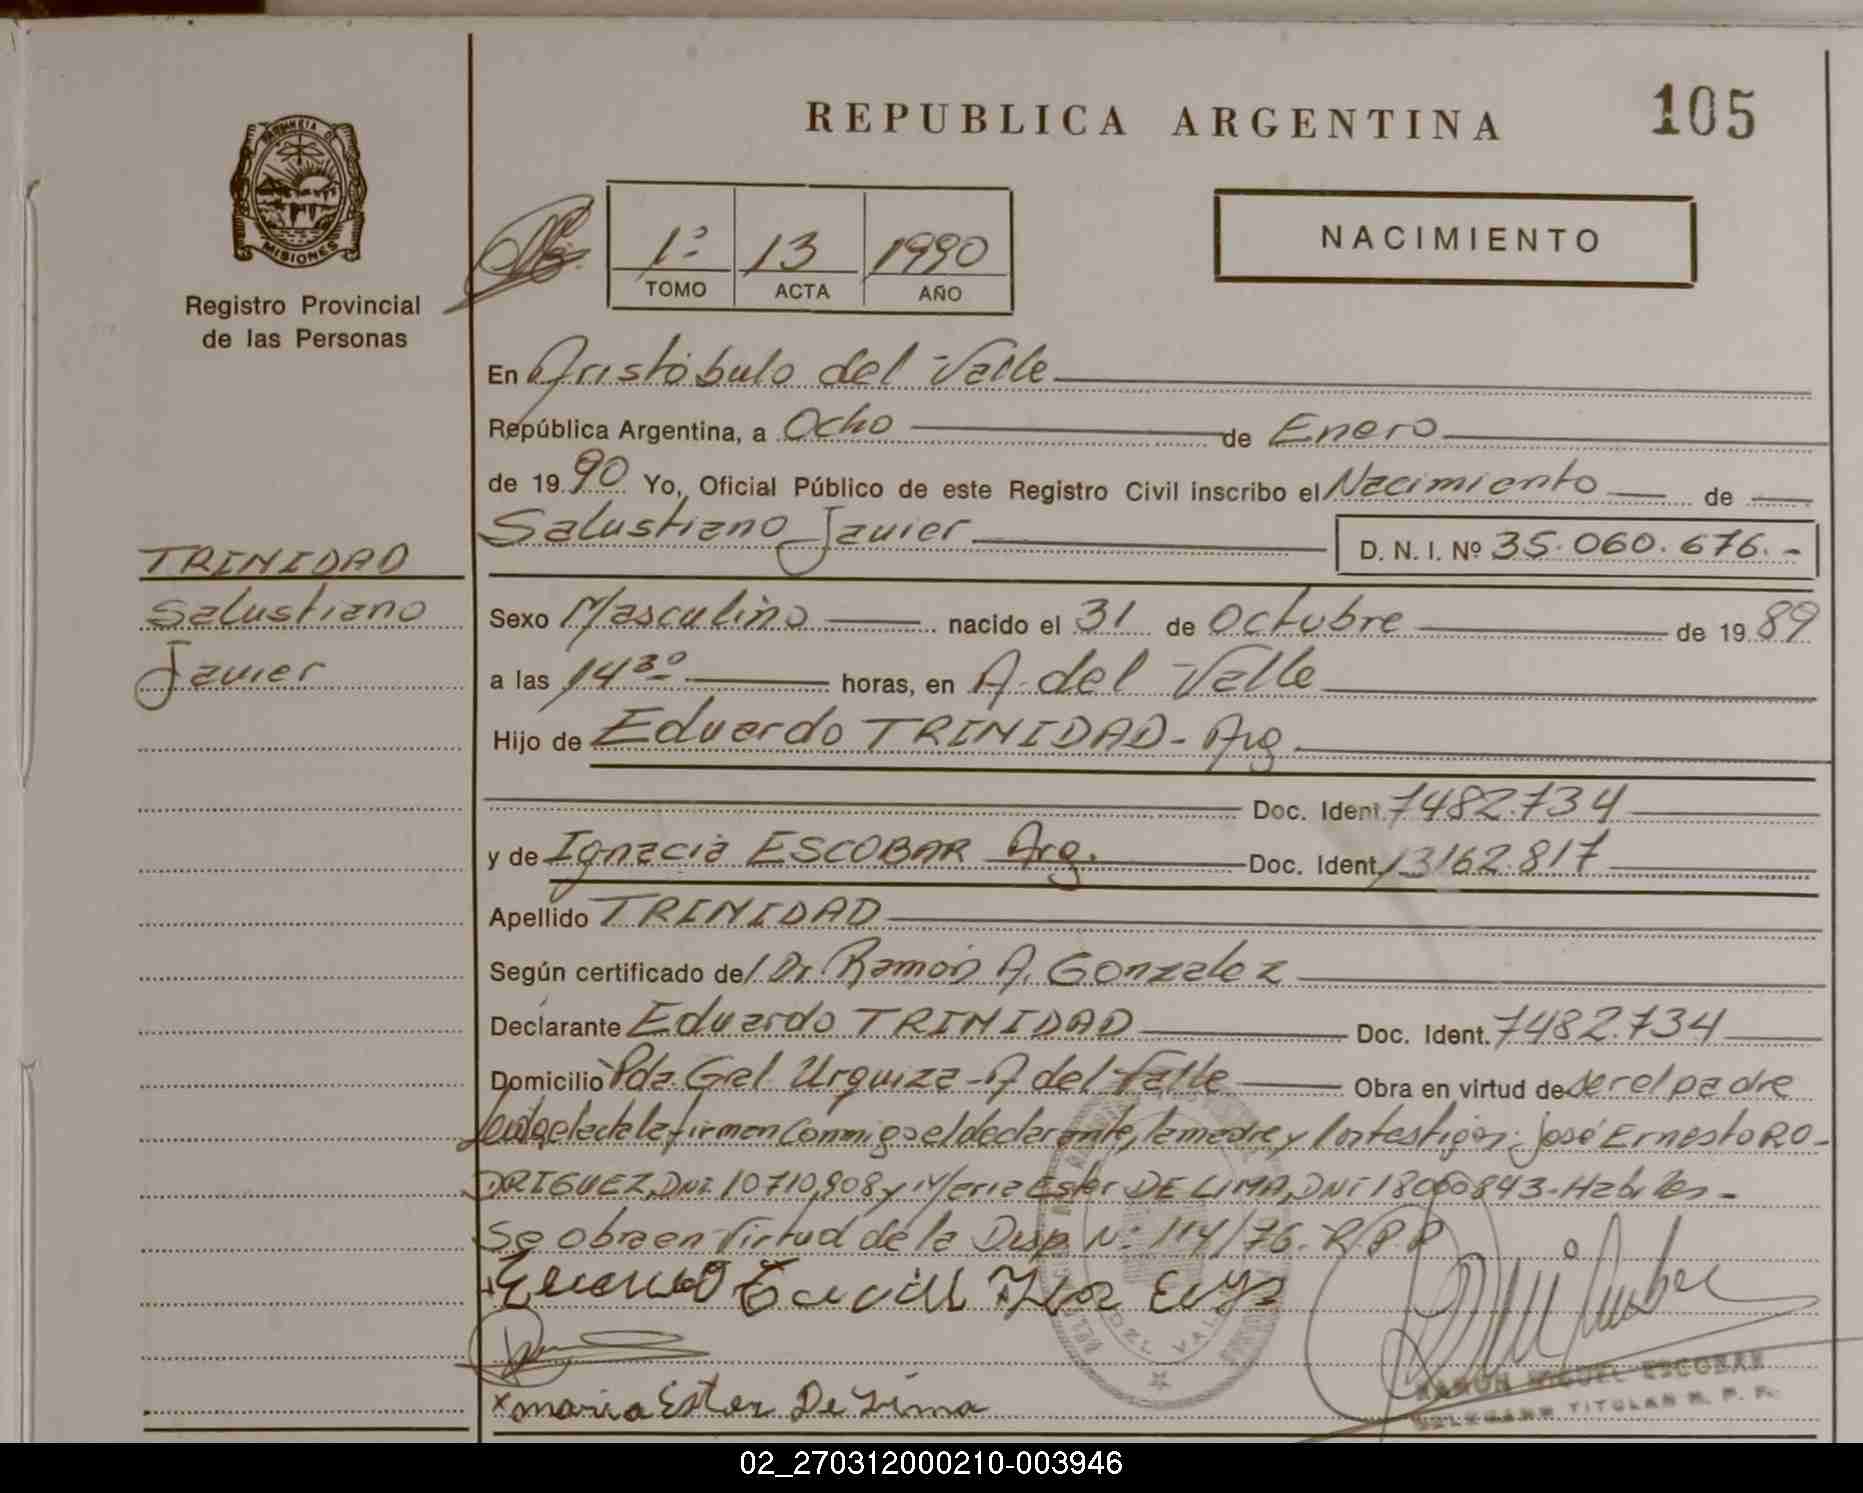 REPUBLICA ARGENTINA
105
PROVINCIA DE
MISIONES
Registro Provincial
de las Personas
1º 13 1990
TOMO ACTA AÑO
NACIMIENTO
En Aristóbulo del Valle
República Argentina, a Ocho de Enero
de 1990 Yo, Oficial Público de este Registro Civil inscribo el Nacimiento de
Salustiano Javier D. N. I. Nº 35.060.676.-
TRINIDAD
Salustiano
Javier
Sexo Masculino nacido el 31 de Octubre de 1989
a las 14 30 horas, en A. del Valle
Hijo de Eduardo TRINIDAD - Arg
Doc. Ident. 7482.734
y de Ignacia ESCOBAR Arg. Doc. Ident. 13162.817
Apellido TRINIDAD
Según certificado del Dr. Ramón A. Gonzalez
Declarante Eduardo TRINIDAD Doc. Ident. 7482.734
Domicilio Pda. Gral. Urquiza - A del Valle Obra en virtud de ser el padre
el acta la firman conmigo el declarante, la madre y los testigos: José Ernesto RO-
DRIGUEZ, DNI 10710.908 y Maria Ester DE LIMA, DNI 18060843 - Habiles -
Se obra en virtud de la Disp. Nº 114/76. R.P.P
DEL VALLE
x maria Ester De Lima
RAMON MIGUEL ESCOBAR
TITULAR R. P. P.
02_270312000210-003946